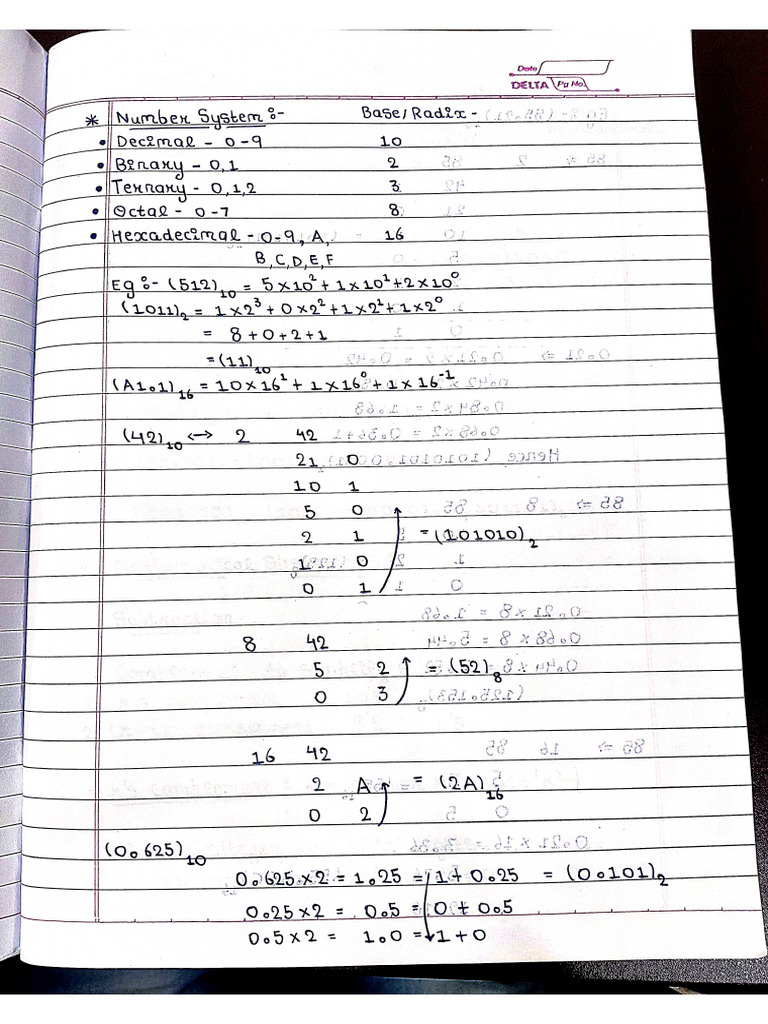 Date
DELTA Pg No.
* Number System :- Base/Radix -
• Decimal - 0-9 10
• Binary - 0,1 2
• Ternary - 0,1,2 3
• Octal - 0-7 8
• Hexadecimal - 0-9, A, 16
B,C,D,E,F
Eg :- (512)₁₀ = 5×10² + 1×10¹ + 2×10⁰
(1011)₂ = 1×2³ + 0×2² + 1×2¹ + 1×2⁰
= 8+0+2+1
= (11)₁₀
(A1.1)₁₆ = 10×16¹ + 1×16⁰ + 1×16⁻¹
(42)₁₀ ↔ 2 42
21 0
10 1
5 0
2 1 = (101010)₂
1 0
0 1
8 42
5 2 = (52)₈
0 3
16 42
2 A = (2A)₁₆
0 2
(0.625)₁₀
0.625×2 = 1.25 = 1 + 0.25 = (0.101)₂
0.25×2 = 0.5 = 0 + 0.5
0.5×2 = 1.0 = 1+0